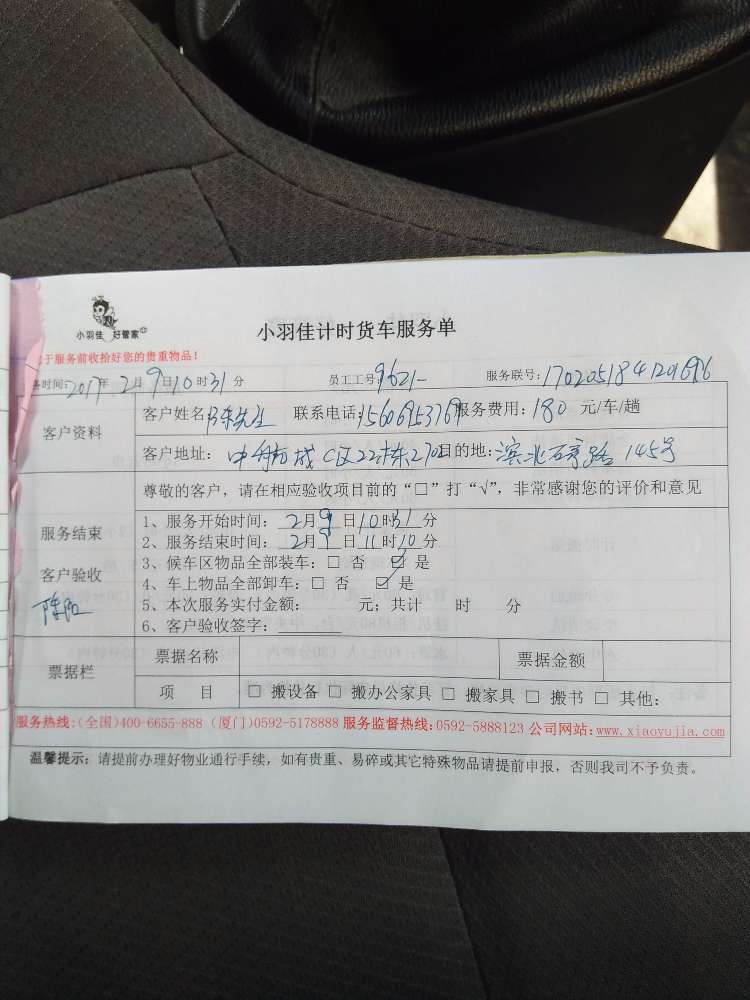 小羽佳 好管家
小羽佳计时货车服务单
于服务前收拾好您的贵重物品！
务时间：2017年 2月 9日10时31分 员工工号 9621 服务联号：170205184120696
客户资料
客户姓名 陈先生 联系电话：15606953769 服务费用：180 元/车/趟
客户地址： 中航城C区22栋2702 目的地：滨北 路145号
尊敬的客户，请在相应验收项目前的“□”打“√”，非常感谢您的评价和意见
服务结束
客户验收
1、服务开始时间： 2月 9日10时31分
2、服务结束时间： 2月 9日11时10分
3、候车区物品全部装车：□ 否 ☑ 是
4、车上物品全部卸车：□ 否 ☑ 是
5、本次服务实付金额： 元；共计 时 分
6、客户验收签字：
票据栏
票据名称 票据金额
项 目 □ 搬设备 □ 搬办公家具 □ 搬家具 □ 搬书 □ 其他：
服务热线：(全国)400-6655-888 (厦门)0592-5178888 服务监督热线：0592-5888123 公司网站：www.xiaoyujia.com
温馨提示：请提前办理好物业通行手续，如有贵重、易碎或其它特殊物品请提前申报，否则我司不予负责。